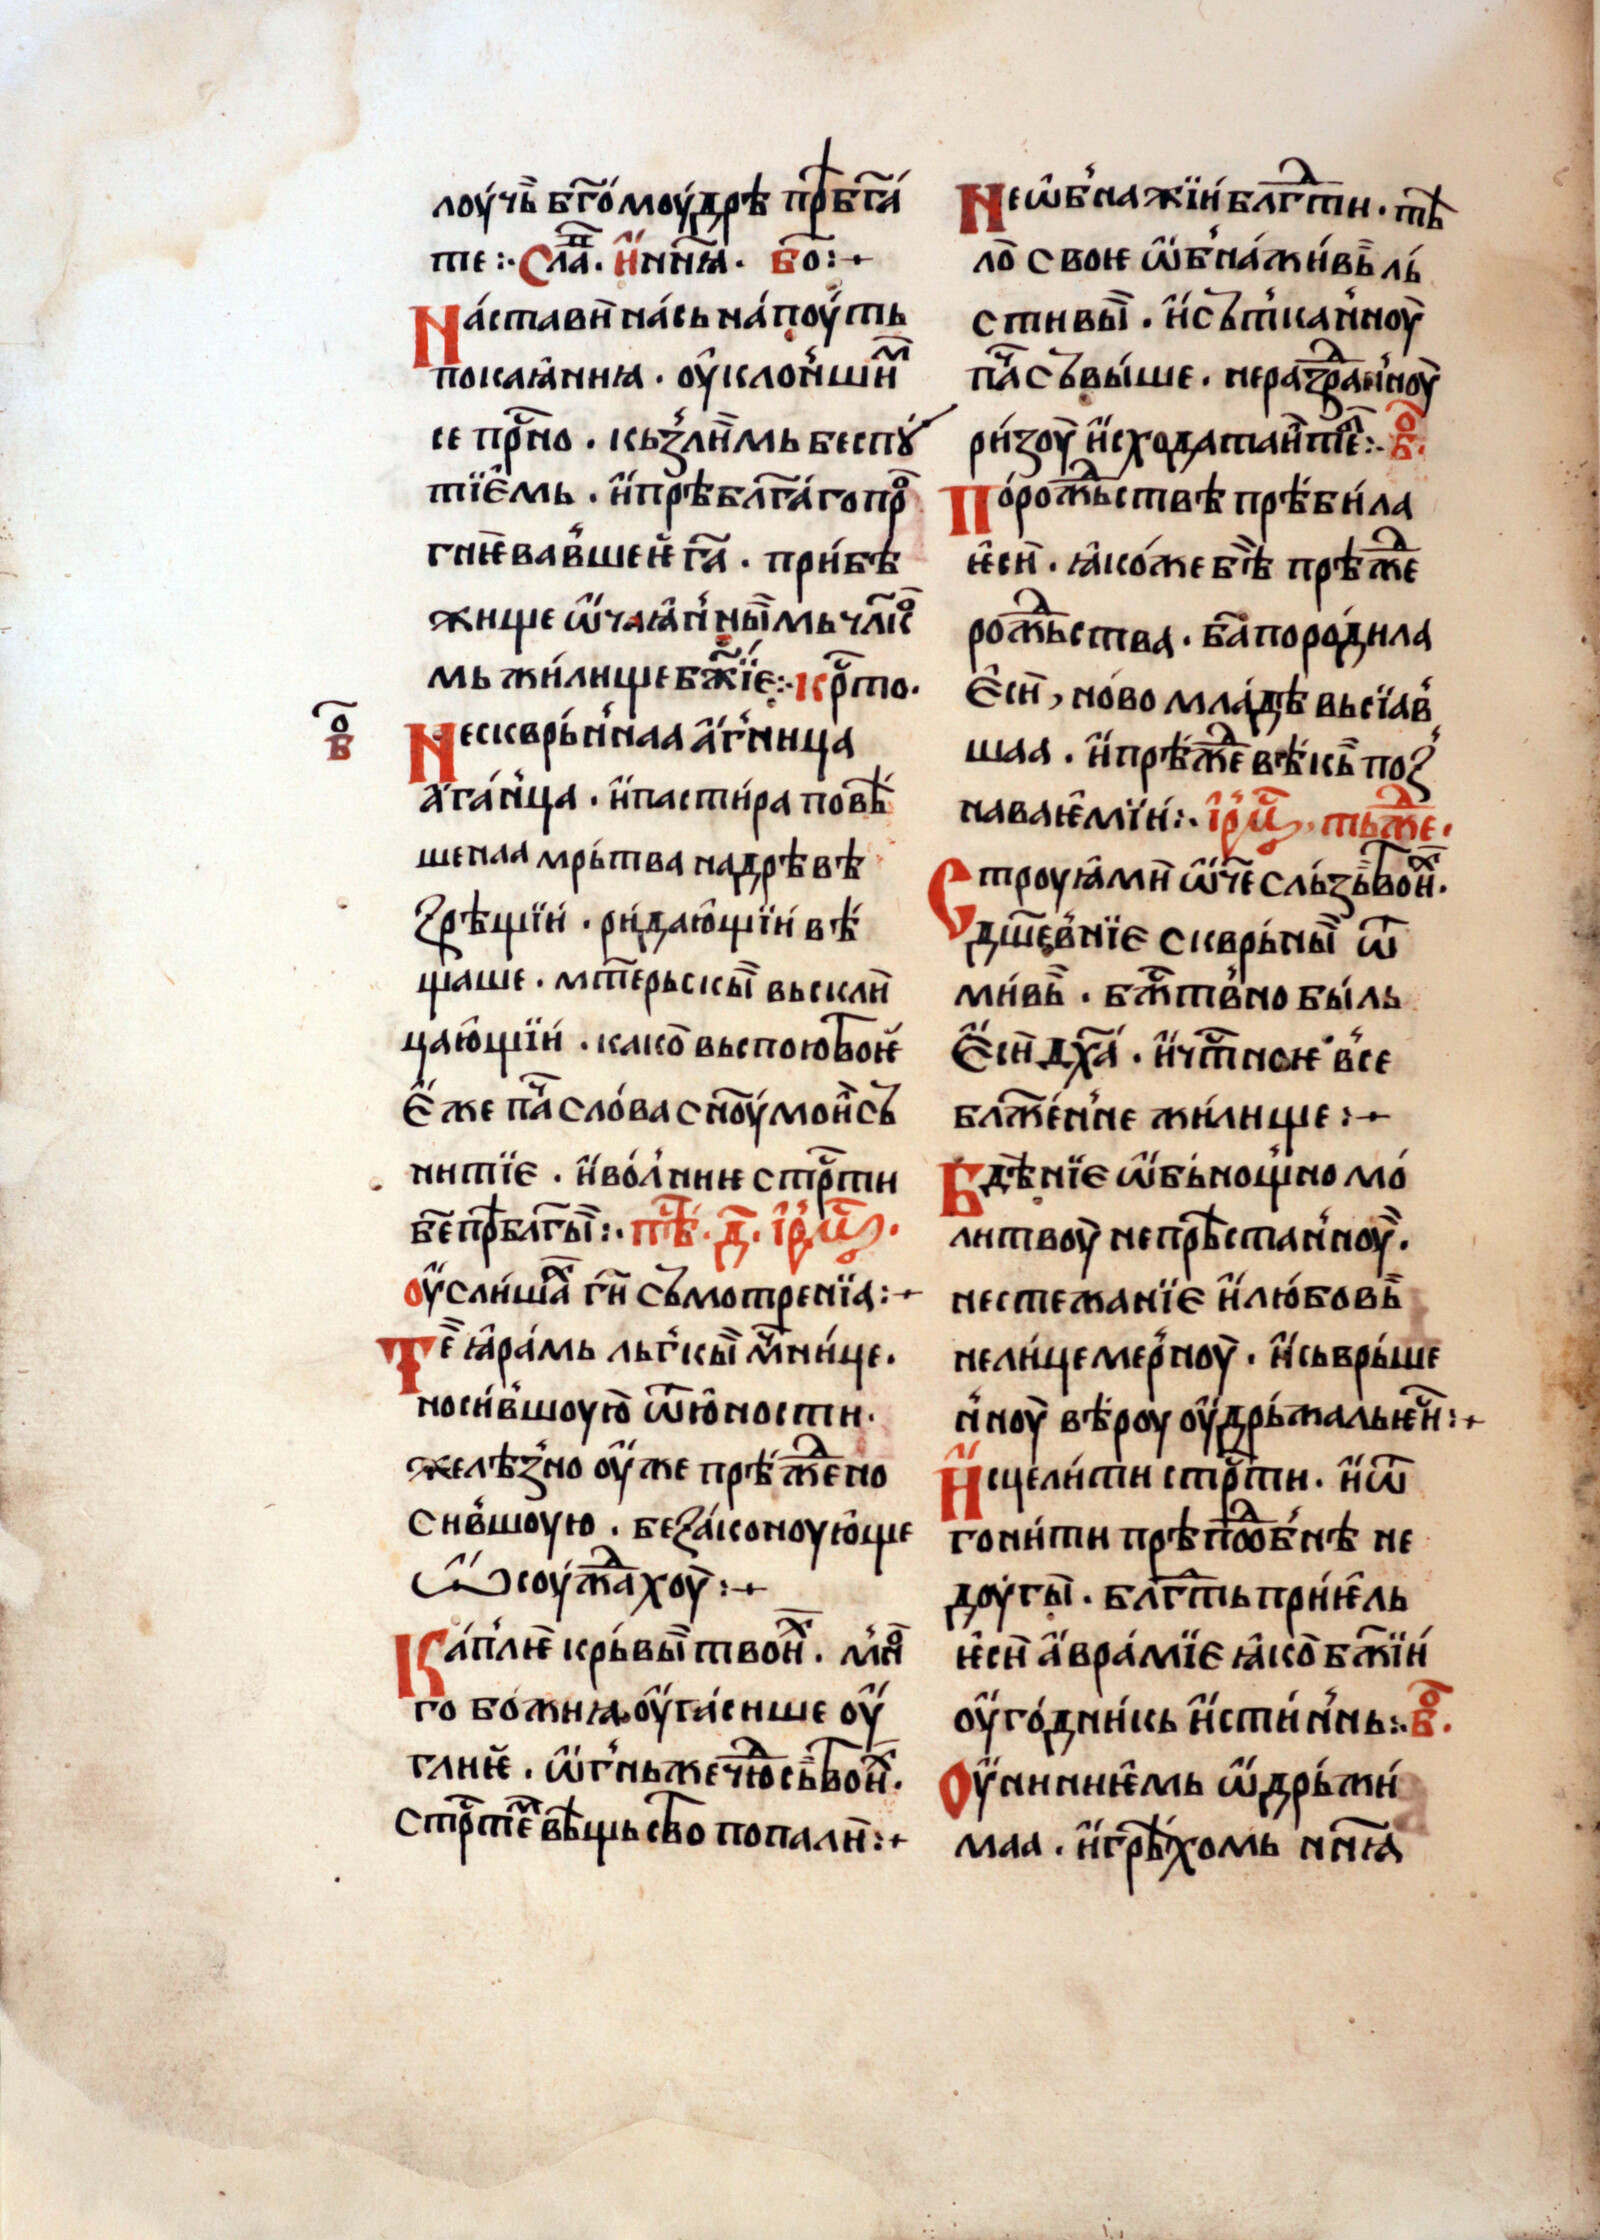 лоу́чь бг҃омоу́дрѣ прⷣбг҃а́
те :· Сла́ⷡ . и҆ нн҃ꙗ . бо҃ :+
На́стави на́сь на́ поу́ть
покаꙗ́ниꙗ . оу҆клон'шиⷨ
се прⷭ҇но . кьзли̏мь беспꙋ́
тїемь . и҆ прѣбл҃га́го проⷢ
гнѥвав'шеи̏ г҃а . при́бѣ
жище ѿчаꙗ́н'ны̏мь чл҃кѡ
мь жи́лище бж҃їе :· крⷭ҇то .
Нескврь́н'наа а҆́г'ница
а҆га́н'ца . и҆ пасти́ра повѣ́
шенаа мрь́тва на дрѣвѣ
зрѣщїи́ . ри́даю҆щїи́ вѣ́
щаше . мт҃ерьскы̏ вьскли̏
цаю҆щїи́ . како̏ вьспою твоѥ
Е҆́же па́ⷱ сло́ва сн҃оу́ мои̏ съ
нитїе . и҆ во́л'ниѥ стрⷭ҇ти
бе҃ прѣбл҃гы̏ :· пѣⷭ . д҃ . і҆рⷨѡ .
Оу҆сли́шаⷯ г҃и съмотренїа :+
Те̏ ꙗ҆ра́мь льг'кы̏ мⷱ҇ни́це .
носи́в'шоую̏ ѿ ю҆ности .
желѣз'но оу҆же прѣ́жⷣено
сив'шоую . беза́коноую҆ще
ѡ҆соу́жⷣахоу̏ :+
Ка́плѥ крь́вы̏ твои̏ⷯ . м'но̏
го бо́жиꙗ оу҆га́сише оу҆́
глиѥ . ѡ҆г'нь же чюⷣсь твои̏ⷯ .
стрⷭ҇теⷨ вѣщьство попали̏ :+
ѡ҃
в
Не ѡ҆б'нажїи́ бл҃гⷣти . тѣ
ло̏ своѥ ѡ҆б'на́жи́вь̏ ль́
стивы̏ . и҆ съткан'ноу̏
па́ⷱ съвы́ше . неразⷣран'ноу̏
ри́зоу̏ и҆сходатаи̏ тⷭ҇ѥ :· боⷢ .
По́ рожⷣьствѣ прѣби́ла
ѥ҆си̏ . ꙗ҆ко́же бѣ̏ прѣжⷣе
рожⷣьства . б҃а породила
е҆си̏, но́во мла́дѣ вьсїав'
шаа . и҆ прѣ́жⷣе вѣ́кь̏ поз'
наваѥ҆мїи́ :· і҆рⷨѡ . тьжⷣе .
Строуꙗ҆ми̏ ѿче сль́зь̏ твои̏ⷯ .
дш҃ев'нїе скврь́ны̏ ѿ
ми́вь̏ . бжⷭ҇тв'но бы́ль
е҆си̏ дх҃а́ . и҆ чт҃ноѥ в'се
блаже́н'не жи́лище :+
Бдѣ́нїе ѡ҆бь́нощ'но мо́
литвоу̏ непрѣстан'ноу̏ .
нестежанїе и҆ лю́бовь̏
нели́цемер'ноу̏ . и҆ сьврь́ше
н'ноу̏ вѣ́роу оу҆дрь́жаль ѥ҆си̏ :+
И҆сцели́ти стрⷭ҇ти . и҆ ѿ
гони́ти прѣпоⷣб'нѣ не
доу́гы̏ . бл҃гⷣть при́ѥ҆ль
ѥ҆си̏ а҆вра́мїе ꙗ҆ко̏ бж҃їи́
оу҆го́дникь и҆сти́н'нь :· боⷢ .
Оу҆ниниѥ҆мь ѡ҆дрь́жи́
маа . и҆ грѣ́хомь нн҃ꙗ